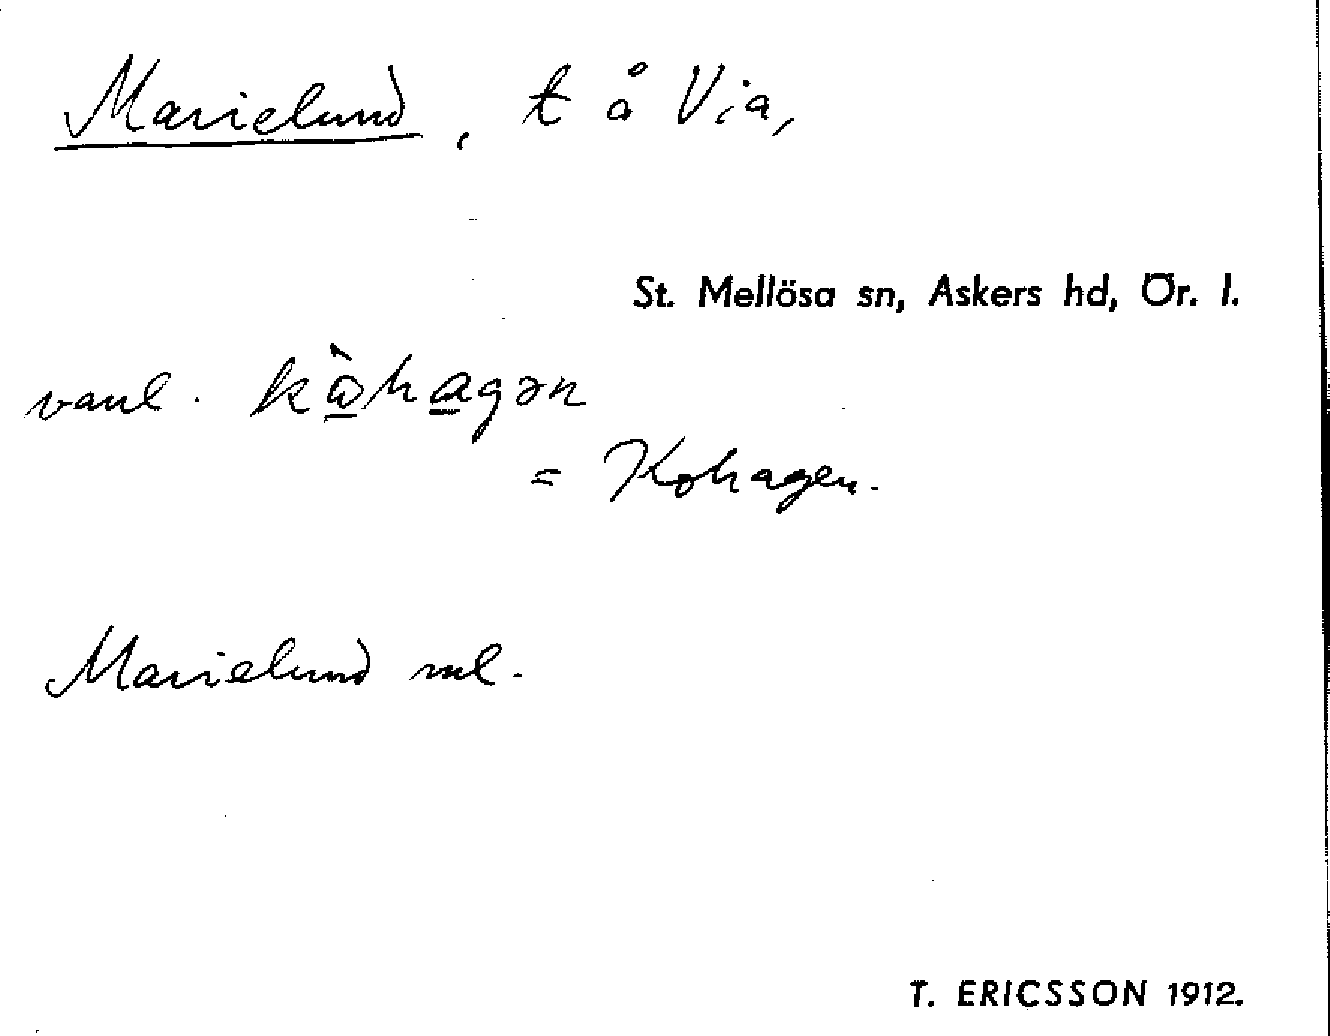 Marielund, t å Via,
St. Mellösa sn, Askers hd, Ör. l.
vanl. kὼhagən
= Kohagen.
Marielund ml.
T. ERICSSON 1912.